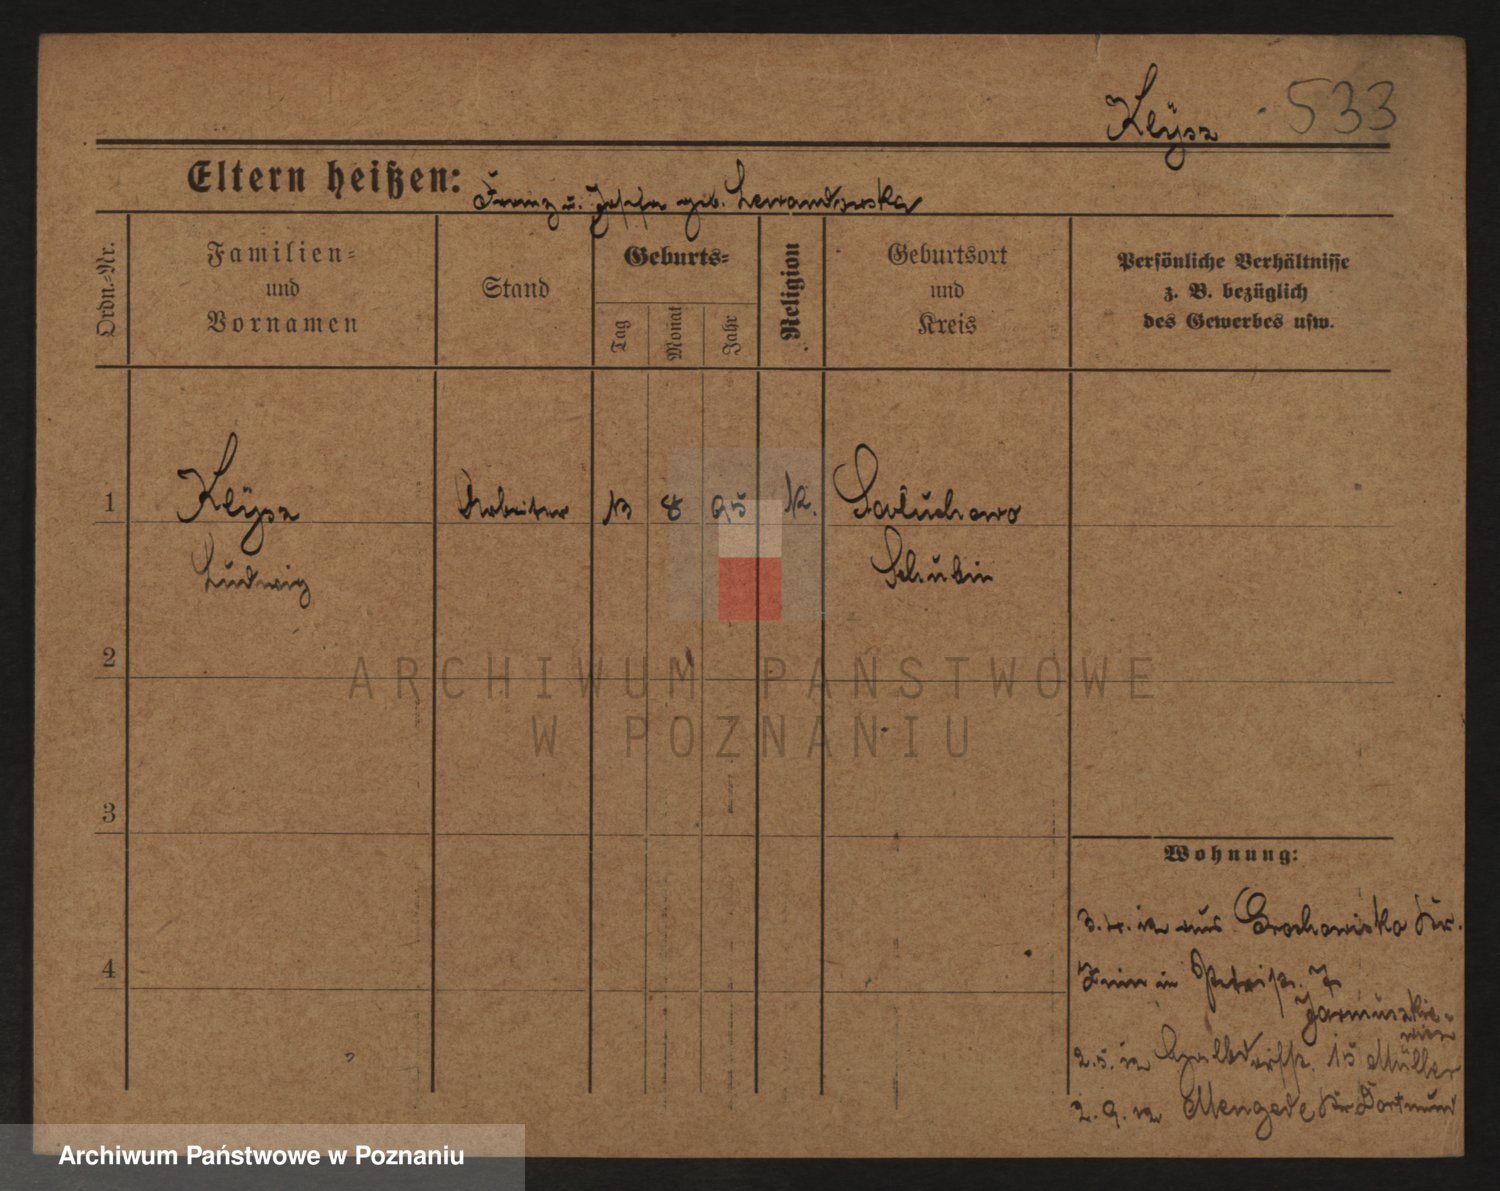 Kleÿsz 533
Eltern heißen: Franz u. Josefa geb. Lewandowska
Ordn.-Nr.
Familien-
und
Vornamen
Stand
Geburts-
Tag
Monat
Jahr
Religion
Geburtsort
und
Kreis
Persönliche Verhältnisse
z. B. bezüglich
des Gewerbes usw.
1 Kleÿsz Arbeiter 8 95 K.
Ludwig Schubin
2
3
4
Wohnung:
aus Grochowiska Kr.
Znin in Petristr. 7
15 Müller
2. 9. Mengede Kr. Dortmund
ARCHIWUM PAŃSTWOWE
W POZNANIU
Archiwum Państwowe w Poznaniu